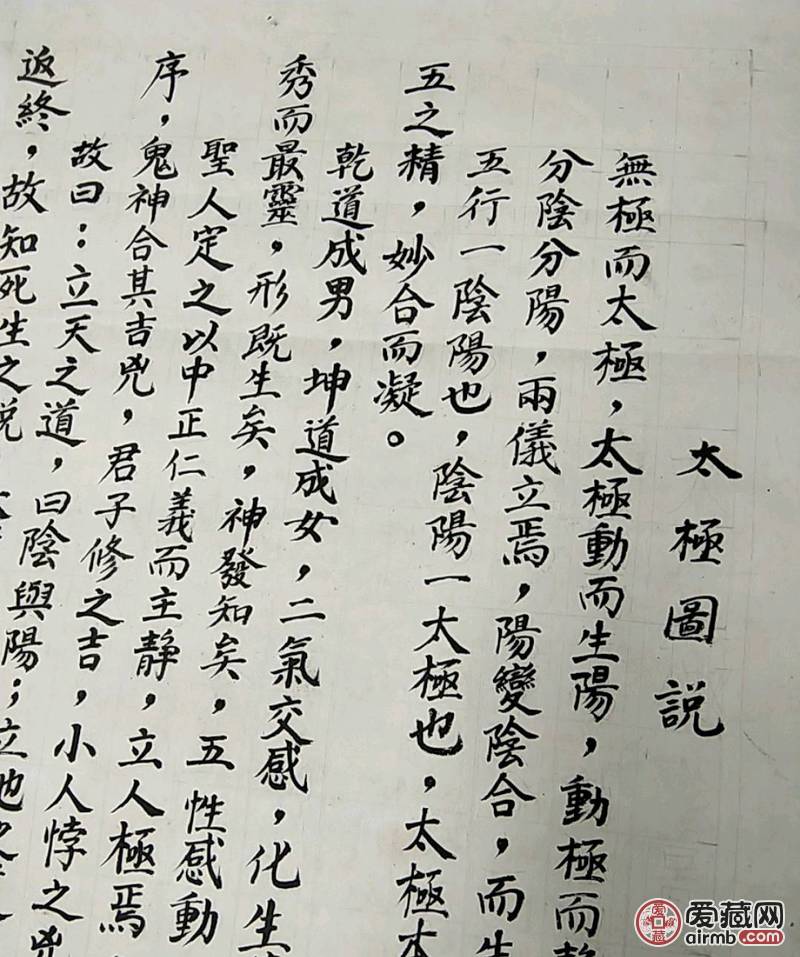 太極圖說
無極而太極，太極動而生陽，動極而
分陰分陽，兩儀立焉，陽變陰合，而生
五行一陰陽也，陰陽一太極也，太極本
五之精，妙合而凝。
乾道成男，坤道成女，二氣交感，化生
秀而最靈，形既生矣，神發知矣，五性感動
聖人定之以中正仁義而主静，立人極焉
序，鬼神合其吉兇，君子修之吉，小人悖之兇
故曰：立天之道，曰陰與陽；立地
返終，故知死生之説
爱藏网
airmb.com
爱藏